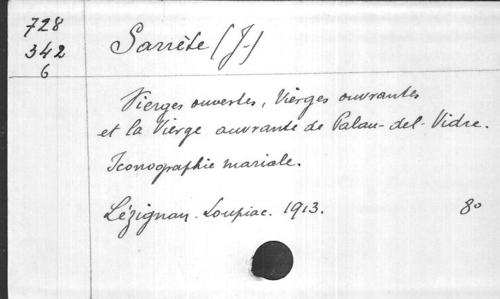 728
342
6
Sarrète (J.)
Vierges ouvertes, Vierges ouvrantes
et la Vierge ouvrante de Palau-del-Vidre.
Iconographie mariale.
Lézignan. Loupiac. 1913. 80